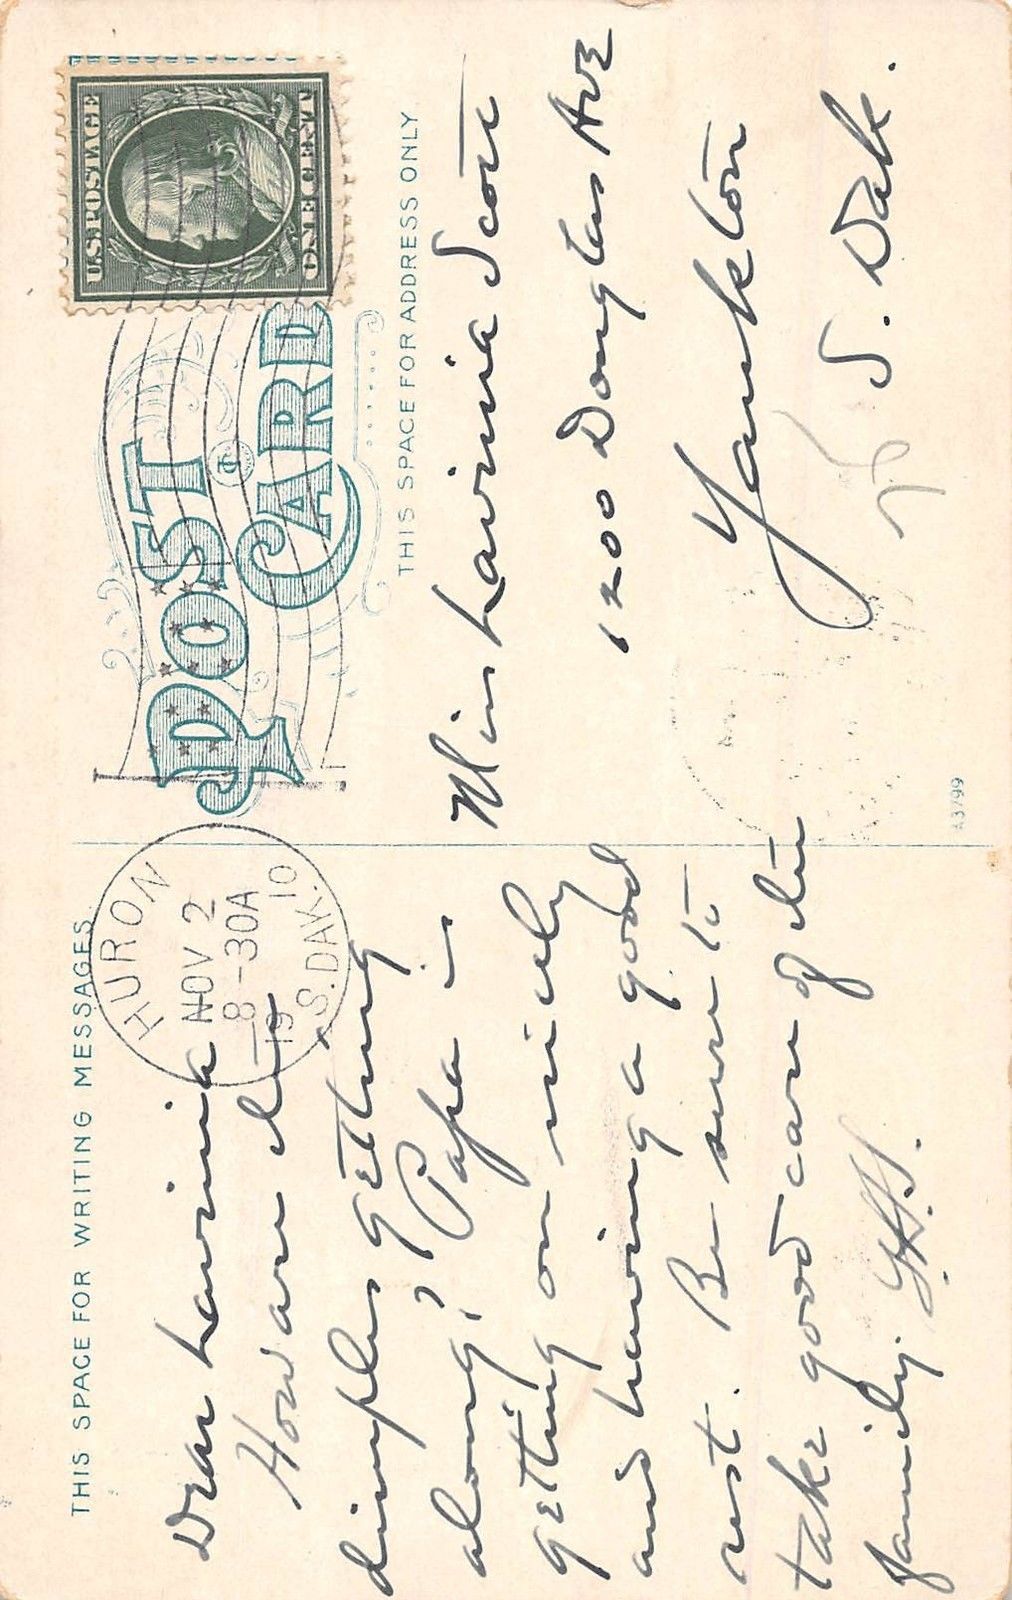 THIS SPACE FOR WRITING MESSAGES
Dear Lavinia
How are the
dimples getting
along? Papa is
getting on nicely
and having a good
rest. Be sure to
take good care of the
family.
HURON
NOV 2
8-30A
1910
S.DAK.
POST
CARD
U.S. POSTAGE
ONE CENT
THIS SPACE FOR ADDRESS ONLY
Miss Lavinia Scott
1200 Douglas Ave
Yankton
S. Dak.
A3799